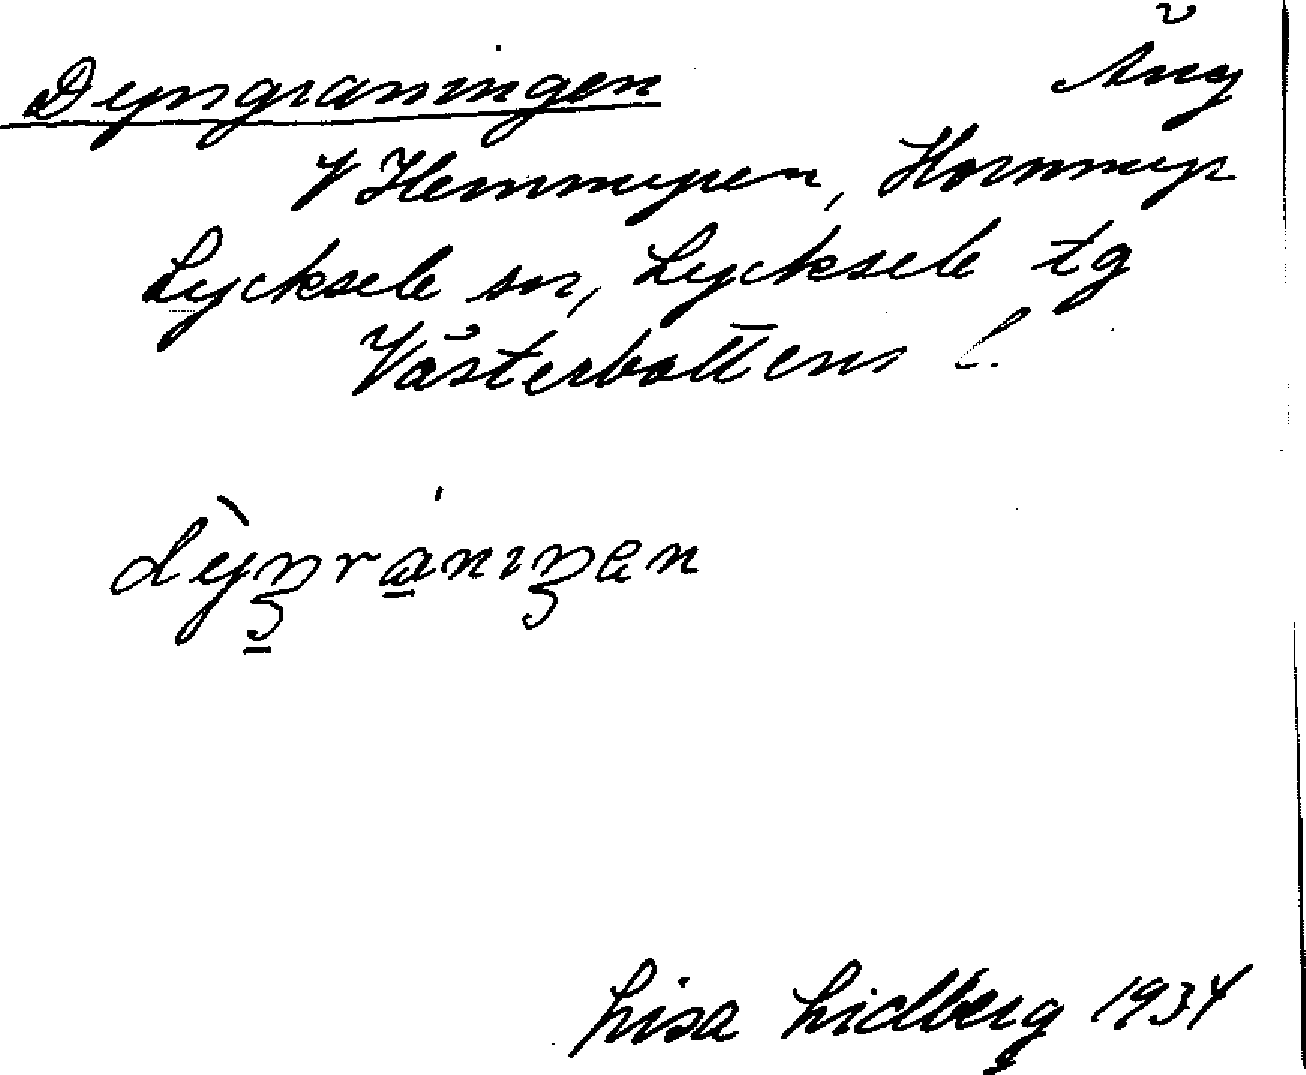 Dyngraningen Äng
V Hemmyren, Hornmyr
Lycksele sn, Lycksele tg
Västerbottens l.
dỳŋ̲ra̲nıŋen
Lisa Lidberg 1934